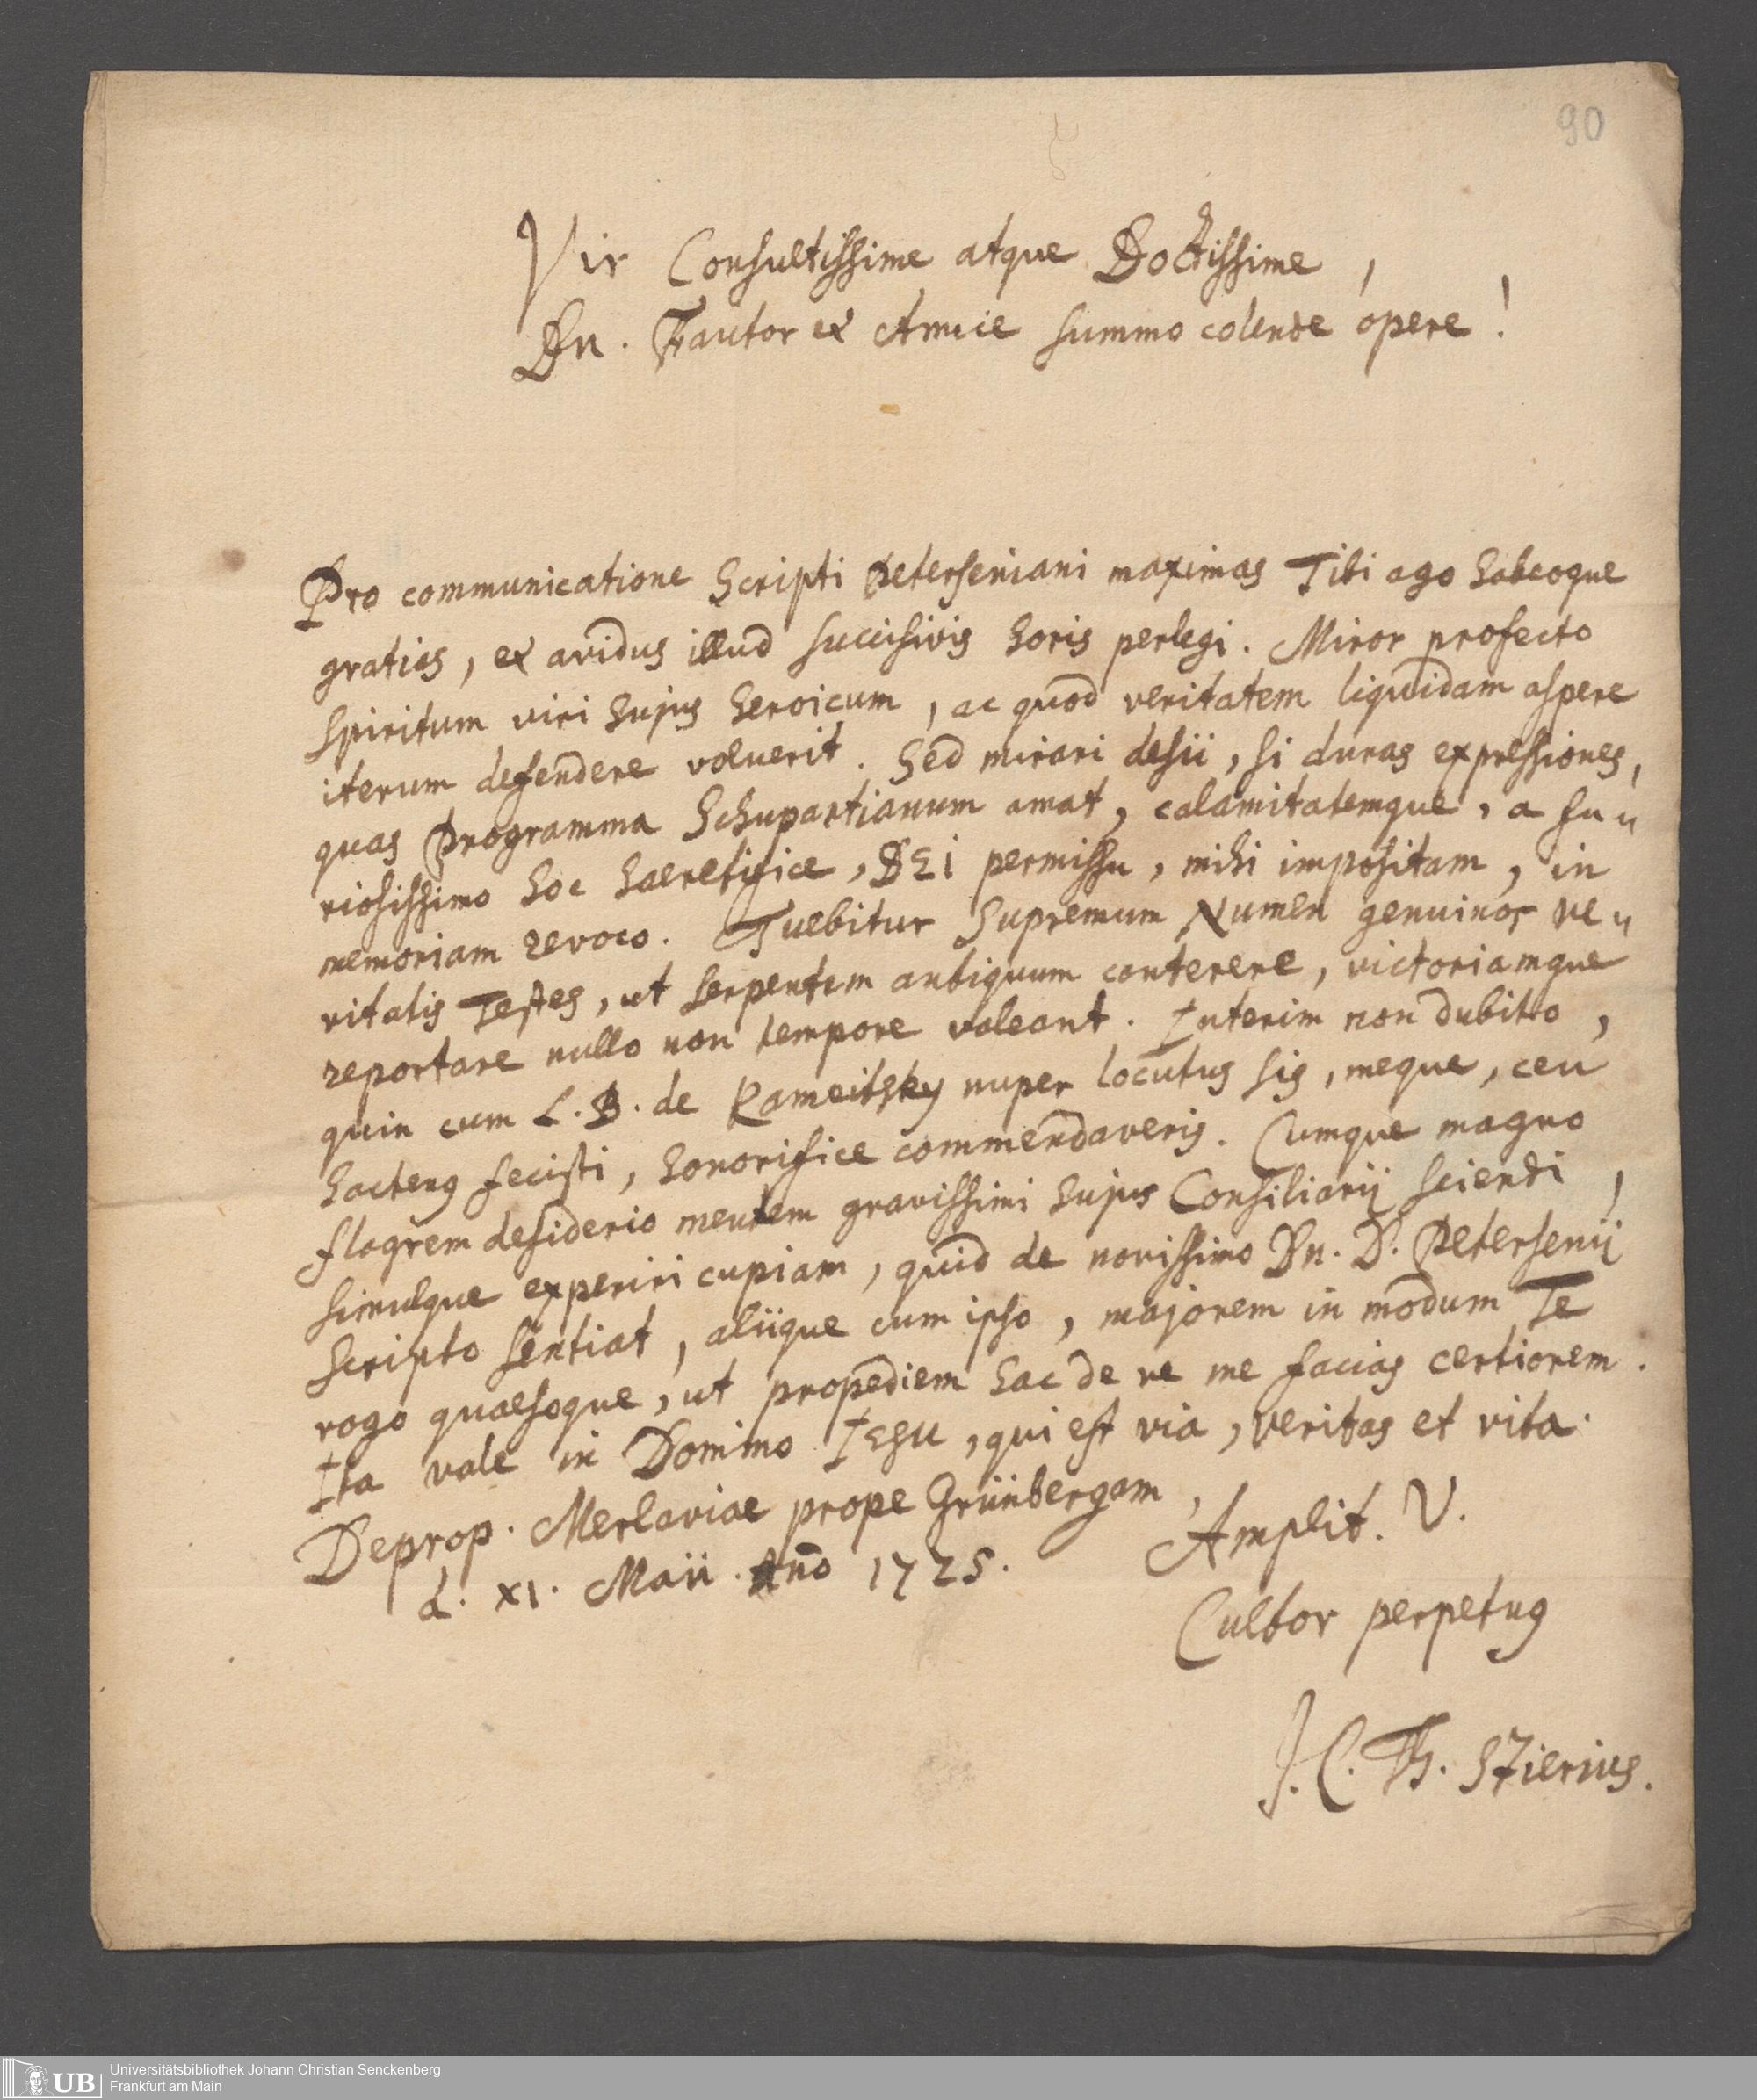 90
Vir Consultissime atque Doctissime,
Dn. Fautor et Amice summo colende opere!
Pro communicatione Scripti Peterseniani maximas Tibi ago habeoque
gratias, et avidus illud succisivis horis perlegi. Miror profecto
spiritum viri hujus heroicum, ac quod veritatem liquidam aspere
iterum defendere voluerit. Sed mirari desii, si duras expressiones,
quas Programma Schupartianum amat, calamitatemque, a fu„
riosissimo hoc haeretifice, DEi permissu, mihi impositam, in
memoriam revoco. Tuebitur Supremum Numen genuinos ve„
ritatis Testes, ut serpentem antiquum conterere, victoriamque
reportare nullo non tempore valeant. Interim non dubito,
quin cum L. B. de Kameitsky nuper locutus sis, meque, ceu
hactenus fecisti, honorifice commendaveris. Cumque magno
flagrem desiderio mentem gravissimi hujus Consiliarij sciendi,
simulque experiri cupiam, quid de novissimo Dn. D. Petersenij
scripto sentiat, aliique cum ipso, majorem in modum Te
rogo quaesoque, ut propediem hac de re me facias certiorem.
Ita vale in Domino IESU, qui est via, veritas et vita.
Deprop. Merlaviae prope Grünbergam,
d. XI. Maii. Ano 1725.
Amplit. V.
Cultor perpetus
J. C. Th. Stierius.
UB
Universitätsbibliothek Johann Christian Senckenberg
Frankfurt am Main